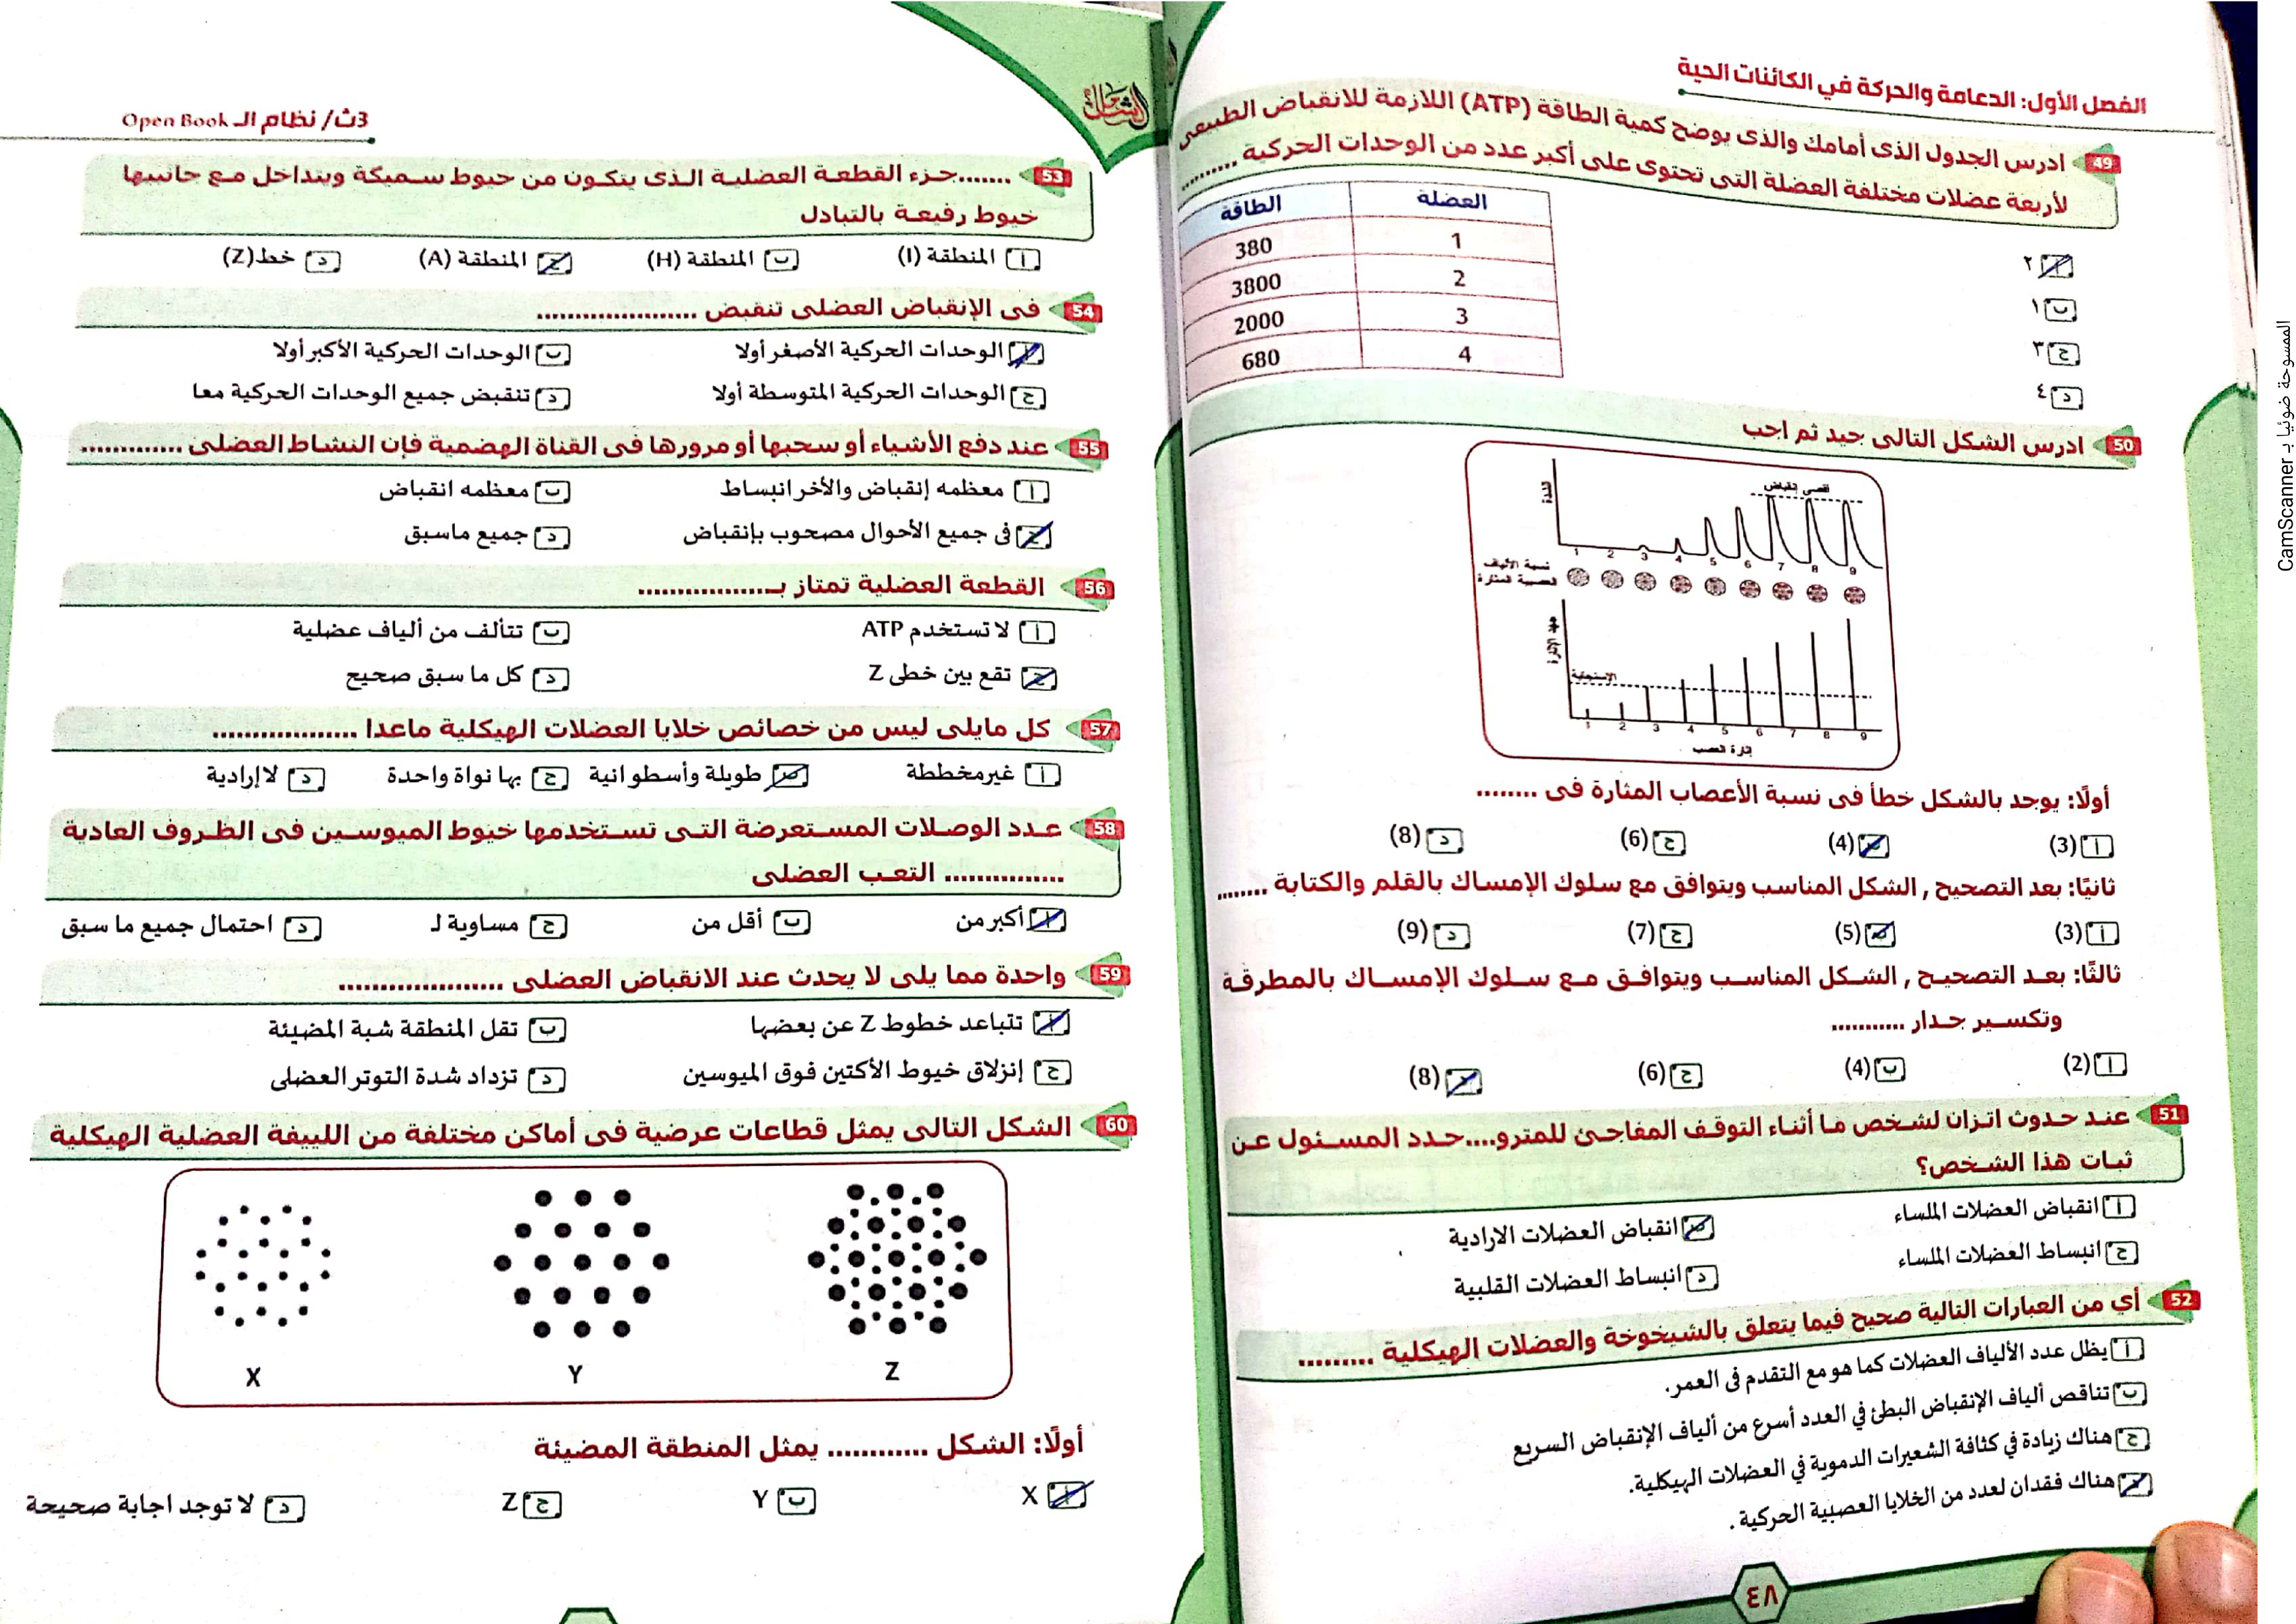 الفصل الأول: الدعامة والحركة في الكائنات الحية
49 ادرس الجدول الذى أمامك والذى يوضح كمية الطاقة (ATP) اللازمة للانقباض الطبيعى
لأربعة عضلات مختلفة العضلة التى تحتوى على أكبر عدد من الوحدات الحركية .........
العضلة الطاقة
1 380
2 3800
3 2000
4 680
أ ٢
ب ١
ج ٣
د ٤
50 ادرس الشكل التالى جيد ثم اجب
أقصى إنقباض
الشدة
1 2 3 4 5 6 7 8 9
نسبة الألياف
العصبية المثارة
جهد الإثارة
الإستجابة
1 2 3 4 5 6 7 8 9
إثارة العصب
أولًا: يوجد بالشكل خطأ فى نسبة الأعصاب المثارة فى ........
أ (3) ب (4) ج (6) د (8)
ثانيًا: بعد التصحيح , الشكل المناسب ويتوافق مع سلوك الإمساك بالقلم والكتابة ........
أ (3) ب (5) ج (7) د (9)
ثالثًا: بعد التصحيح , الشكل المناسب ويتوافق مع سلوك الإمساك بالمطرقة
وتكسير جدار ...........
أ (2) ب (4) ج (6) د (8)
51 عند حدوث اتزان لشخص ما أثناء التوقف المفاجئ للمترو....حدد المسئول عن
ثبات هذا الشخص؟
أ انقباض العضلات الملساء ب انقباض العضلات الارادية
ج انبساط العضلات الملساء د انبساط العضلات القلبية
52 أي من العبارات التالية صحيح فيما يتعلق بالشيخوخة والعضلات الهيكلية .........
أ يظل عدد الألياف العضلات كما هو مع التقدم فى العمر.
ب تناقص ألياف الإنقباض البطئ في العدد أسرع من ألياف الإنقباض السريع
ج هناك زيادة في كثافة الشعيرات الدموية في العضلات الهيكلية.
د هناك فقدان لعدد من الخلايا العصبية الحركية .
٤٨
الشامل
3ث/ نظام الـ Open Book
53 .......جزء القطعة العضلية الذى يتكون من خيوط سميكة ويتداخل مع جانبيها
خيوط رفيعة بالتبادل
أ المنطقة (I) ب المنطقة (H) ج المنطقة (A) د خط(Z)
54 فى الإنقباض العضلى تنقبض ....................
أ الوحدات الحركية الأصغر أولا ب الوحدات الحركية الأكبر أولا
ج الوحدات الحركية المتوسطة أولا د تنقبض جميع الوحدات الحركية معا
55 عند دفع الأشياء أو سحبها أو مرورها فى القناة الهضمية فإن النشاط العضلى .............
أ معظمه إنقباض والأخر انبساط ب معظمه انقباض
ج فى جميع الأحوال مصحوب بإنقباض د جميع ماسبق
56 القطعة العضلية تمتاز بـ.................
أ لا تستخدم ATP ب تتألف من ألياف عضلية
ج تقع بين خطى Z د كل ما سبق صحيح
57 كل مايلى ليس من خصائص خلايا العضلات الهيكلية ماعدا ..................
أ غير مخططة ب طويلة وأسطوانية ج بها نواة واحدة د لا إرادية
58 عدد الوصلات المستعرضة التى تستخدمها خيوط الميوسين فى الظروف العادية
............... التعب العضلى
أ أكبر من ب أقل من ج مساوية لـ د احتمال جميع ما سبق
59 واحدة مما يلى لا يحدث عند الانقباض العضلى ....................
أ تتباعد خطوط Z عن بعضها ب تقل المنطقة شبة المضيئة
ج إنزلاق خيوط الأكتين فوق الميوسين د تزداد شدة التوتر العضلى
60 الشكل التالى يمثل قطاعات عرضية فى أماكن مختلفة من الليفة العضلية الهيكلية
X Y Z
أولًا: الشكل ............ يمثل المنطقة المضيئة
أ X ب Y ج Z د لا توجد اجابة صحيحة
الممسوحة ضوئيا بـ CamScanner